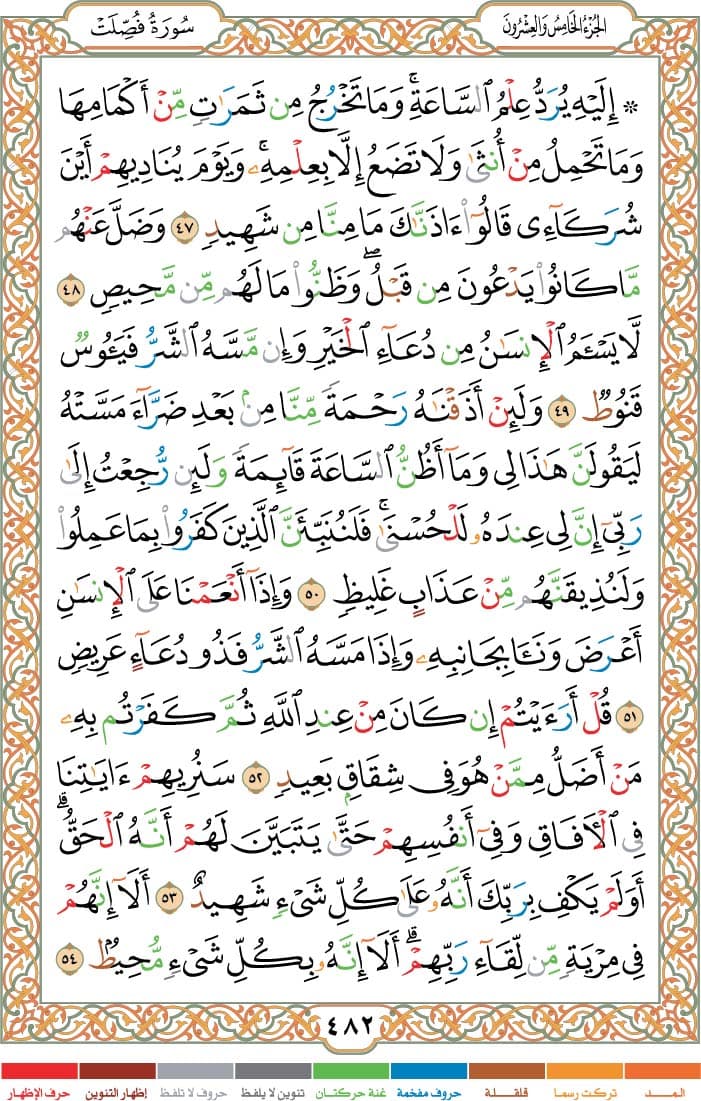 الجزء الخامس والعشرون
سورة فصلت
* إِلَيْهِ يُرَدُّ عِلْمُ ٱلسَّاعَةِۚ وَمَا تَخْرُجُ مِن ثَمَرَٰتٍ مِّنْ أَكْمَامِهَا
وَمَا تَحْمِلُ مِنْ أُنثَىٰ وَلَا تَضَعُ إِلَّا بِعِلْمِهِۦۚ وَيَوْمَ يُنَادِيهِمْ أَيْنَ
شُرَكَآءِى قَالُوٓا۟ ءَاذَنَّٰكَ مَا مِنَّا مِن شَهِيدٍ ٤٧ وَضَلَّ عَنْهُم
مَّا كَانُوا۟ يَدْعُونَ مِن قَبْلُۖ وَظَنُّوا۟ مَا لَهُم مِّن مَّحِيصٍ ٤٨
لَّا يَسْـَٔمُ ٱلْإِنسَٰنُ مِن دُعَآءِ ٱلْخَيْرِ وَإِن مَّسَّهُ ٱلشَّرُّ فَيَـُٔوسٌ
قَنُوطٌ ٤٩ وَلَئِنْ أَذَقْنَٰهُ رَحْمَةً مِّنَّا مِنۢ بَعْدِ ضَرَّآءَ مَسَّتْهُ
لَيَقُولَنَّ هَٰذَا لِى وَمَآ أَظُنُّ ٱلسَّاعَةَ قَآئِمَةً وَلَئِن رُّجِعْتُ إِلَىٰ
رَبِّىٓ إِنَّ لِى عِندَهُۥ لَلْحُسْنَىٰۚ فَلَنُنَبِّئَنَّ ٱلَّذِينَ كَفَرُوا۟ بِمَا عَمِلُوا۟
وَلَنُذِيقَنَّهُم مِّنْ عَذَابٍ غَلِيظٍ ٥٠ وَإِذَآ أَنْعَمْنَا عَلَى ٱلْإِنسَٰنِ
أَعْرَضَ وَنَـَٔا بِجَانِبِهِۦ وَإِذَا مَسَّهُ ٱلشَّرُّ فَذُو دُعَآءٍ عَرِيضٍ
٥١ قُلْ أَرَءَيْتُمْ إِن كَانَ مِنْ عِندِ ٱللَّهِ ثُمَّ كَفَرْتُم بِهِۦ
مَنْ أَضَلُّ مِمَّنْ هُوَ فِى شِقَاقٍۭ بَعِيدٍ ٥٢ سَنُرِيهِمْ ءَايَٰتِنَا
فِى ٱلْـَٔافَاقِ وَفِىٓ أَنفُسِهِمْ حَتَّىٰ يَتَبَيَّنَ لَهُمْ أَنَّهُ ٱلْحَقُّۗ
أَوَلَمْ يَكْفِ بِرَبِّكَ أَنَّهُۥ عَلَىٰ كُلِّ شَىْءٍ شَهِيدٌ ٥٣ أَلَآ إِنَّهُمْ
فِى مِرْيَةٍ مِّن لِّقَآءِ رَبِّهِمْۗ أَلَآ إِنَّهُۥ بِكُلِّ شَىْءٍ مُّحِيطٌۢ ٥٤
٤٨٢
المـــد
تركت رسما
قلقلة
حروف مفخمة
غنة حركتان
تنوين لا يلفظ
حروف لا تلفظ
إظهار التنوين
حرف الإظهار